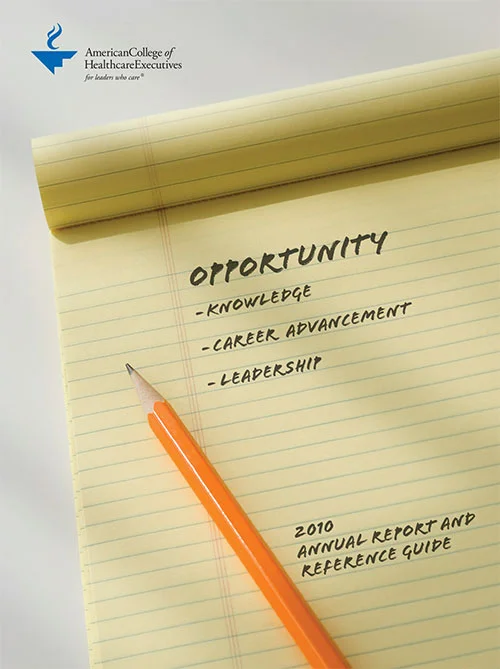 AmericanCollege of
HealthcareExecutives
for leaders who care®
OPPORTUNITY
-KNOWLEDGE
-CAREER ADVANCEMENT
-LEADERSHIP
2010
ANNUAL REPORT AND
REFERENCE GUIDE